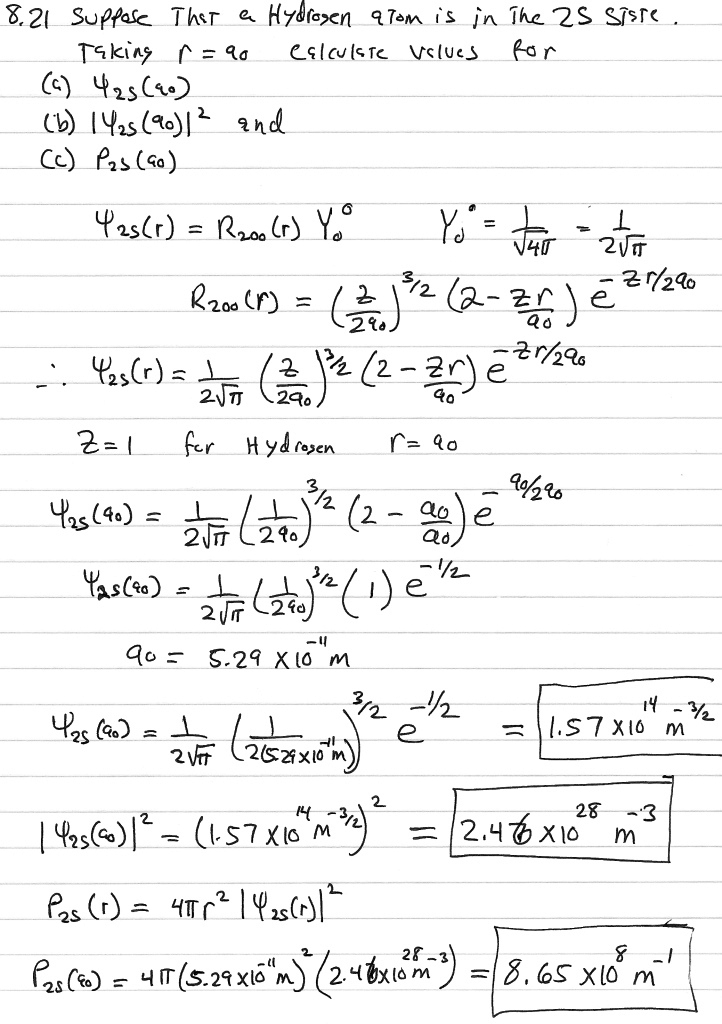 8.21 Suppose That a Hydrogen atom is in the 2S State.
Taking r = a₀ calculate values for
(a) Ψ₂ₛ(a₀)
(b) |Ψ₂ₛ(a₀)|² and
(c) P₂ₛ(a₀)
Ψ₂ₛ(r) = R₂₀₀(r) Y₀⁰ Y₀⁰ = 1/√4π = 1/2√π
R₂₀₀(r) = (Z/2a₀)^3/2 (2 - Zr/a₀) e^-Zr/2a₀
∴ Ψ₂ₛ(r) = 1/2√π (Z/2a₀)^3/2 (2 - Zr/a₀) e^-Zr/2a₀
Z=1 for Hydrogen r = a₀
Ψ₂ₛ(a₀) = 1/2√π (1/2a₀)^3/2 (2 - a₀/a₀) e^-a₀/2a₀
Ψ₂ₛ(a₀) = 1/2√π (1/2a₀)^3/2 (1) e^-1/2
a₀ = 5.29 X10^-11 m
Ψ₂ₛ(a₀) = 1/2√π (1/2(5.29X10^-11 m))^3/2 e^-1/2 = 1.57 X10^14 m^-3/2
|Ψ₂ₛ(a₀)|² = (1.57 X10^14 m^-3/2)² = 2.46 X10^28 m^-3
P₂ₛ(r) = 4πr² |Ψ₂ₛ(r)|²
P₂ₛ(a₀) = 4π(5.29X10^-11 m)² (2.46X10^28 m^-3) = 8.65 X10^8 m^-1